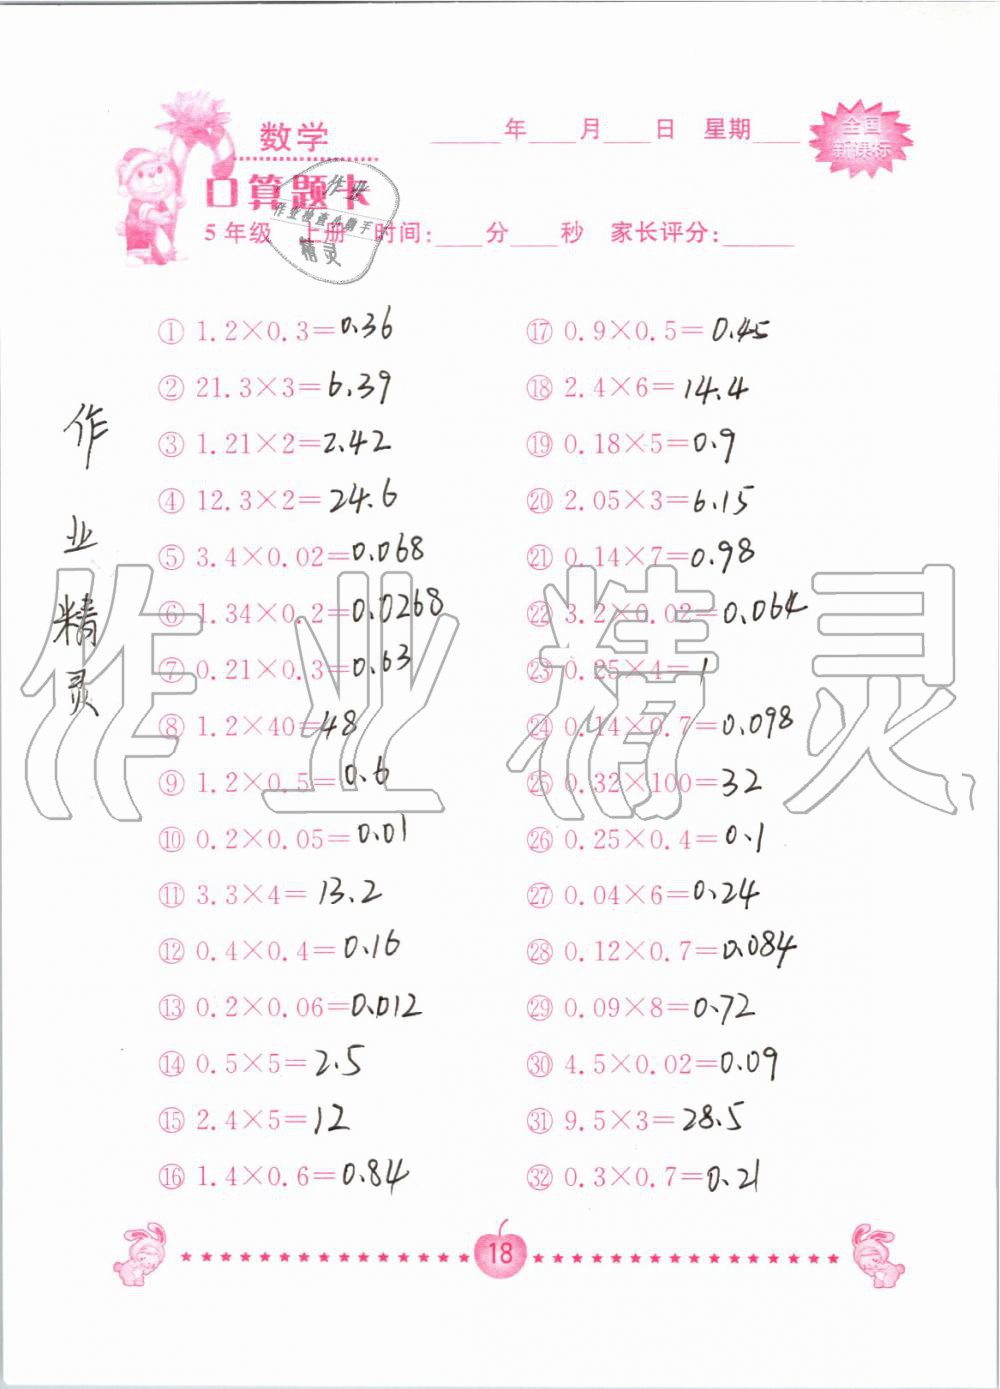 数学
____年____月____日 星期____
全国
新课标
口算题卡
作业
作业检查小助手
精灵
5年级 上册 时间:____分____秒 家长评分:____
① 1.2×0.3=0.36
② 21.3×3=6.39
③ 1.21×2=2.42
④ 12.3×2=24.6
⑤ 3.4×0.02=0.068
⑥ 1.34×0.2=0.0268
⑦ 0.21×0.3=0.63
⑧ 1.2×40=48
⑨ 1.2×0.5=0.6
⑩ 0.2×0.05=0.01
⑪ 3.3×4=13.2
⑫ 0.4×0.4=0.16
⑬ 0.2×0.06=0.012
⑭ 0.5×5=2.5
⑮ 2.4×5=12
⑯ 1.4×0.6=0.84
⑰ 0.9×0.5=0.45
⑱ 2.4×6=14.4
⑲ 0.18×5=0.9
⑳ 2.05×3=6.15
㉑ 0.14×7=0.98
㉒ 3.2×0.02=0.064
㉓ 0.25×4=1
㉔ 0.14×0.7=0.098
㉕ 0.32×100=32
㉖ 0.25×0.4=0.1
㉗ 0.04×6=0.24
㉘ 0.12×0.7=0.084
㉙ 0.09×8=0.72
㉚ 4.5×0.02=0.09
㉛ 9.5×3=28.5
㉜ 0.3×0.7=0.21
作业精灵
作业精灵
18